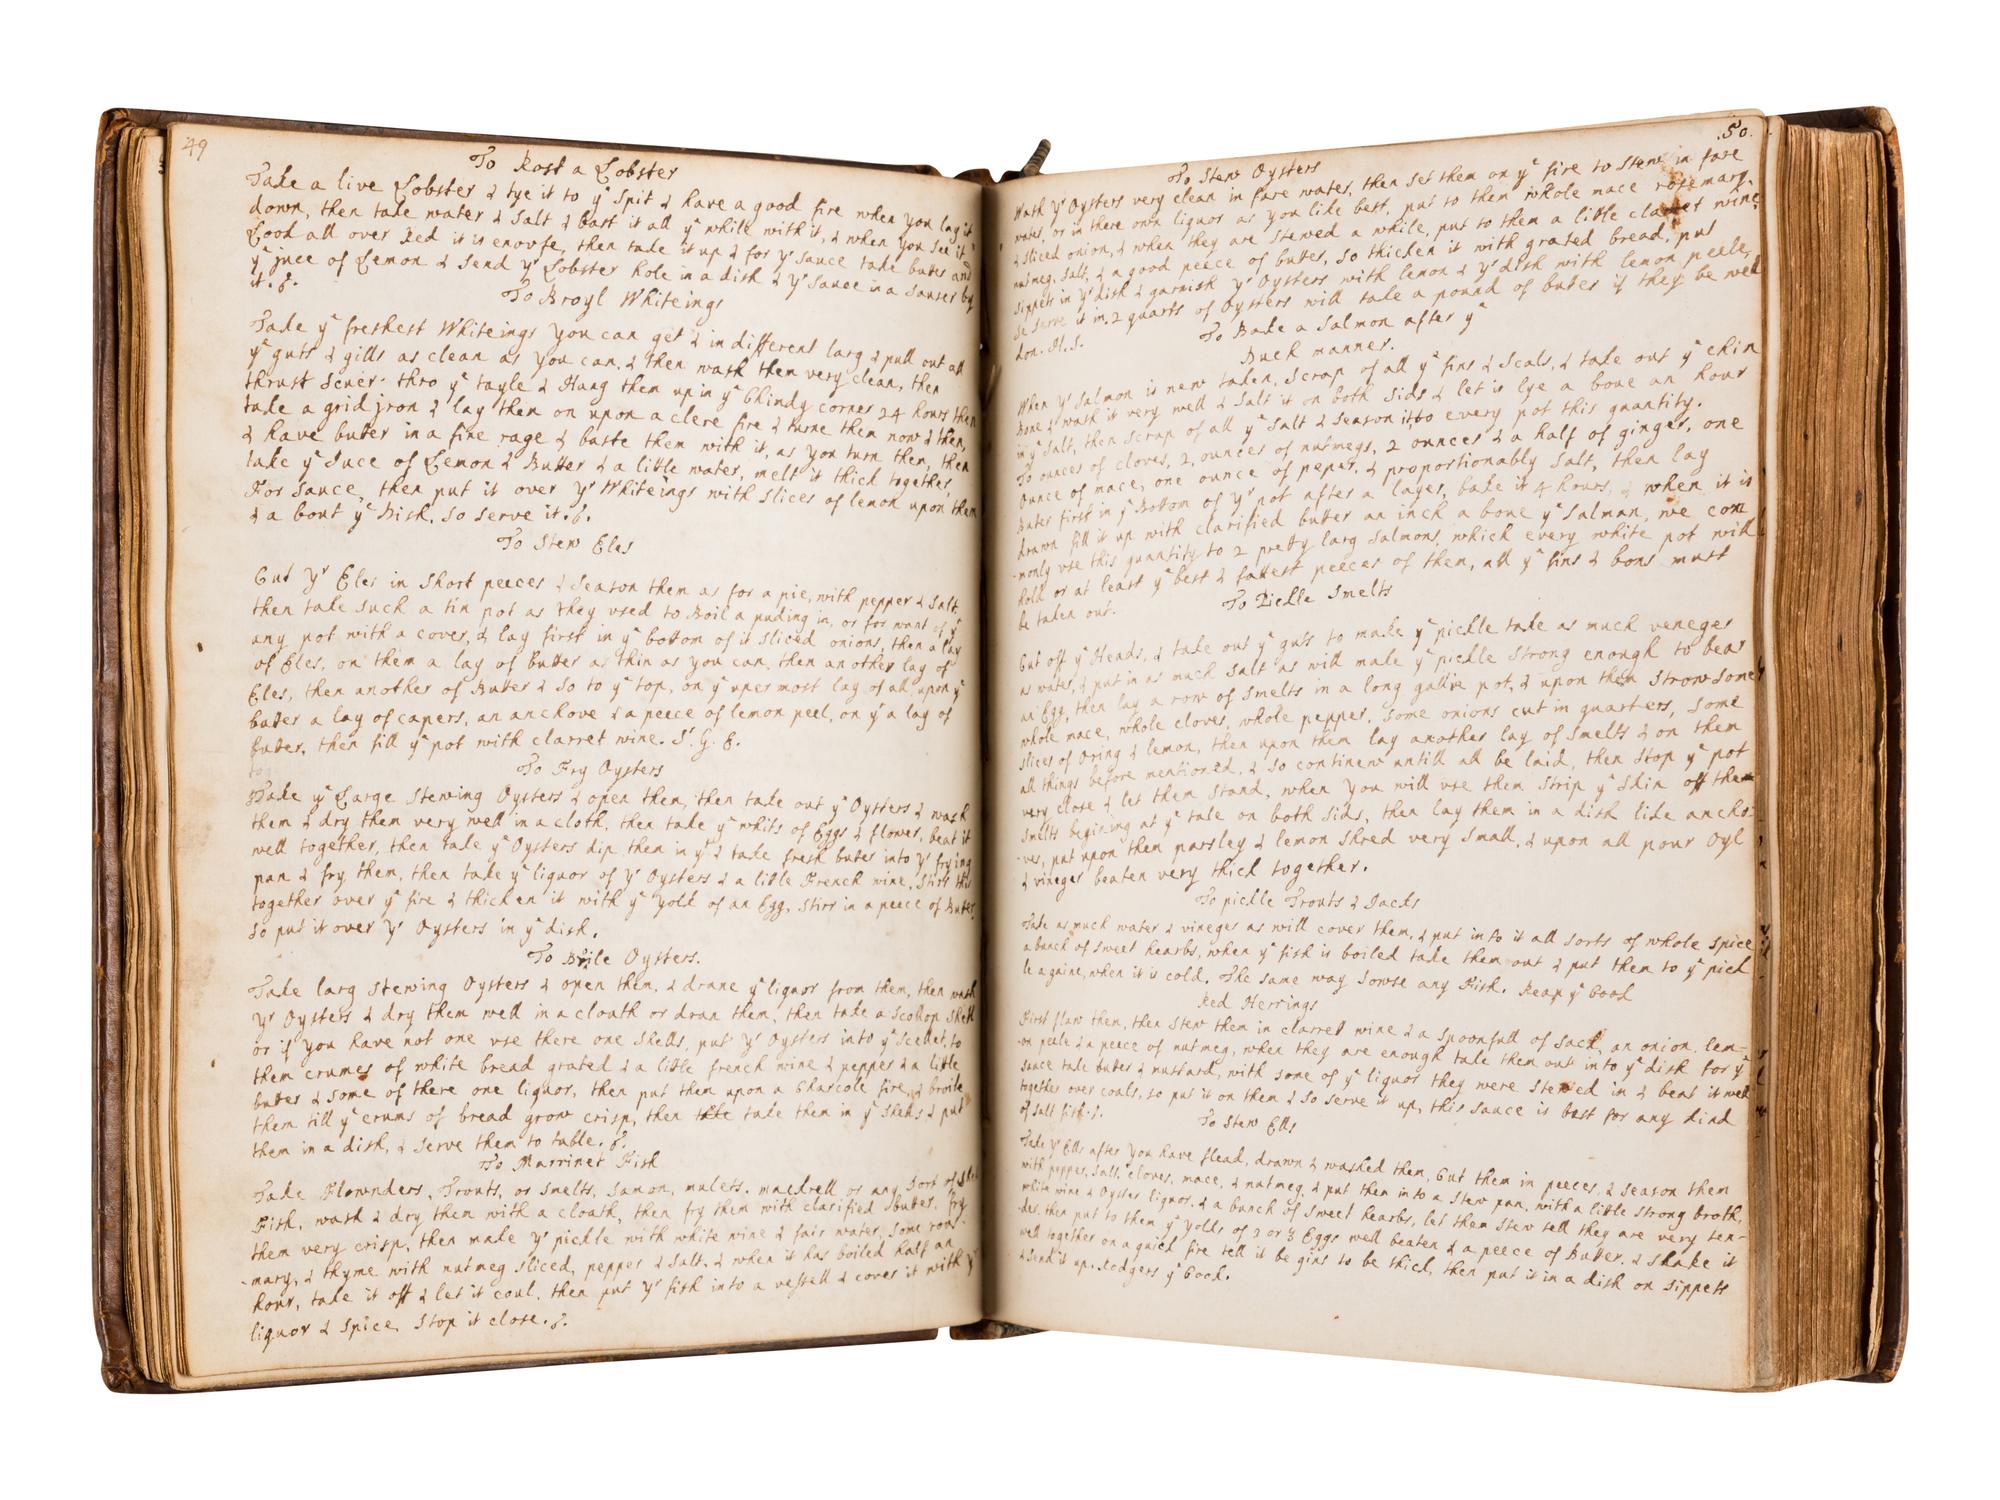 49
To Rost a Lobster
Take a live Lobster & tye it to yᵉ Spit & have a good fire when you lay it
down, then take water & Salt & bast it all yᵉ while with it, & when you see it
Lood all over Red it is enoufe, then take it up & for yʳ sauce take buter and
yᵉ juce of Lemon & Send yʳ Lobster hole in a dish & yʳ Sauce in a sauser by
it.
To Broyl Whiteings
Take yᵉ freshest Whiteings you can get & in different larg & pull out all
yᵉ guts & gills as clean as you can, & then wash them very clean, then
thrust thro yᵉ tayle & Hang them up in yᵉ Chimdy corner 24 hours then
take a grid jron & lay them on upon a clere fire & turne them now & then,
& have buter in a fine rage & baste them with it, as you turn them, then
take yᵉ Juce of Lemon & Butter & a little water, melt it thick together,
For Sauce, then put it over yʳ Whiteings with slices of lemon upon them
& a bout yᵉ Dish, so serve it.
To Stew Eles
Cut yʳ Eles in Short peeces & Season them as for a pie, with pepper & Salt,
then take such a tin pot as they vsed to Boil a puding in, or for want of yᵗ
any pot with a cover, & lay first in yᵉ bottom of it sliced onions, then a lay
of Eles, on them a lay of Butter as thin as you can, then another lay of
Eles, then another of Butter & so to yᵉ top, on yᵉ upermost lay of all, upon yᵉ
buter a lay of capers, an anchove & a peece of lemon peel, on yᵗ a lay of
Buter, then fill yᵉ pot with clarret wine. Sʳ. G. E.
To Fry Oysters
Take yᵉ Large Stewing Oysters & open them, then take out yᵉ Oysters & wash
them & dry them very well in a cloth, then take yᵉ whits of Eggs & flower, beat it
well together, then take yᵉ Oysters dip them in yᵗ & take fresh buter into yʳ frying
pan & fry them, then take yᵉ liquor of yʳ Oysters & a little French wine, Stirr this
together over yᵉ fire & thicken it with yᵉ yolk of an Egg, stirr in a peece of Buter
So put it over yʳ Oysters in yᵉ dish.
To Brile Oysters.
Take larg stewing Oysters & open them, & drane yᵉ liquor from them, then wash
yʳ Oysters & dry them well in a cloath or dran them, then take a Scollop shell
or if you have not one vse there one Shells, put yʳ Oysters into yᵉ Scellet, to
them crumes of white bread grated & a little french wine & pepper & a little
buter & some of there one liquor, then put them upon a Charcole fire, & broile
them till yᵉ crums of bread grow crisp, then take them in yᵉ Shells & put
them in a dish, & serve them to table.
To Marrinet Fish
Take Flownders, Trouts, or Smelts, Samon, mulets, mackrell or any sort of
Fish, wash & dry them with a cloath, then fry them with clarified butter, fry
them very crisp, then make yʳ pickle with white wine & fair water, some ros-
-mary, & thyme with nutmeg sliced, pepper & Salt, & when it has boiled half an
hour, take it off & let it coul, then put yʳ fish into a vessell & cover it with yᵉ
liquor & Spice, Stop it close.
50
To Stew Oysters
Wash yʳ Oysters very clean in fare water, then set them on yᵉ fire to stew in fare
water, or in there own liquor as you like best, put to them whole mace rosemary,
& sliced onion, & when they are stewed a while, put to them a little claret wine,
nutmeg, Salt, & a good peece of butter, so thicken it with grated bread, put
sippets in yʳ dish & garnish yʳ Oysters with lemon & yʳ dish with lemon peele,
so serve it in, 2 quarts of Oysters will take a pound of buter if they be well
don.
To Bake a Salmon after yᵉ
Duch manner.
When yʳ Salmon is new taken, scrap of all yᵉ fins & Scals, & take out yᵉ chin
Bone & wash it very well & Salt it on both Sids & let is lye a bove an hour
in yᵉ Salt, then scrap of all yᵉ Salt & Season it, to every pot this quantity.
To ounces of cloves, 2 ounces of nutmegs, 2 ounces & a half of ginger, one
Ounce of mace, one ounce of peper, & proportionably Salt, then lay
Buter first in yᵉ Bottom of yʳ pot after a layer, bake it 4 hours, & when it is
drawn fill it up with clarified butter an inch a bove yᵉ Salmon, we com
-monly vse this quantity to 2 pretty larg Salmons, which every white pot will
hold or at least yᵉ best & fattest peeces of them, all yᵉ fins & bons must
be taken out.
To Pickle Smelts
Cut off yᵉ Heads, & take out yᵉ guts to make yᵉ pickle take as much veneger
as water, & put in as much Salt as will make yᵉ pickle strong enough to bear
an Egg, then lay a row of Smelts in a long pot, & upon them Strow some
whole mace, whole cloves, whole pepper, some onions cut in quarters, some
slices of Oring & lemon, then upon them lay another lay of Smelts & on them
all things before mentioned, & so continew untill all be laid, then Stop yᵉ pot
very close & let them stand, when you will vse them Strip yᵉ Skin off them
smelts begining at yᵉ tale on both Sids, then lay them in a dish like ancho-
-ves, put upon them parsley & lemon shred very small, & upon all pour Oyl
& vineger beaten very thick together.
To pickle Trouts & Jacks
Take as much water & vineger as will cover them, & put in to it all sorts of whole spice
a bunch of sweet hearbs, when yᵉ fish is boiled take them out & put them to yᵉ pick
le againe, when it is cold, The same way sowse any Fish. Reap yᵉ book
Red Herrings
First flaw them, then stew them in clarret wine & a Spoonfull of Sack, an onion, lem-
-on peele & a peece of nutmeg, when they are enough take them out into yᵉ dish for yᵉ
sauce take buter & mustard, with some of yᵉ liquor they were stewed in & beat it well
together over coals, so put it on them & so serve it up, this sauce is best for any kind
of salt fish.
To Stew Ells
Take yʳ Ells after you have flead, drawn & washed them, Cut them in peeces, & season them
with pepper, salt, cloves, mace, & nutmeg, & put them into a Stew pan, with a little strong broth,
white wine & Oyster liquor, & a bunch of sweet hearbs, let them stew tell they are very ten-
-der, then put to them yᵉ yolks of 2 or 3 Eggs well beaten & a peece of Butter, & shake it
well together on a quick fire tell it be gins to be thick, then put it in a dish on sippets
& Send it up. Rodgers yᵉ Cook.